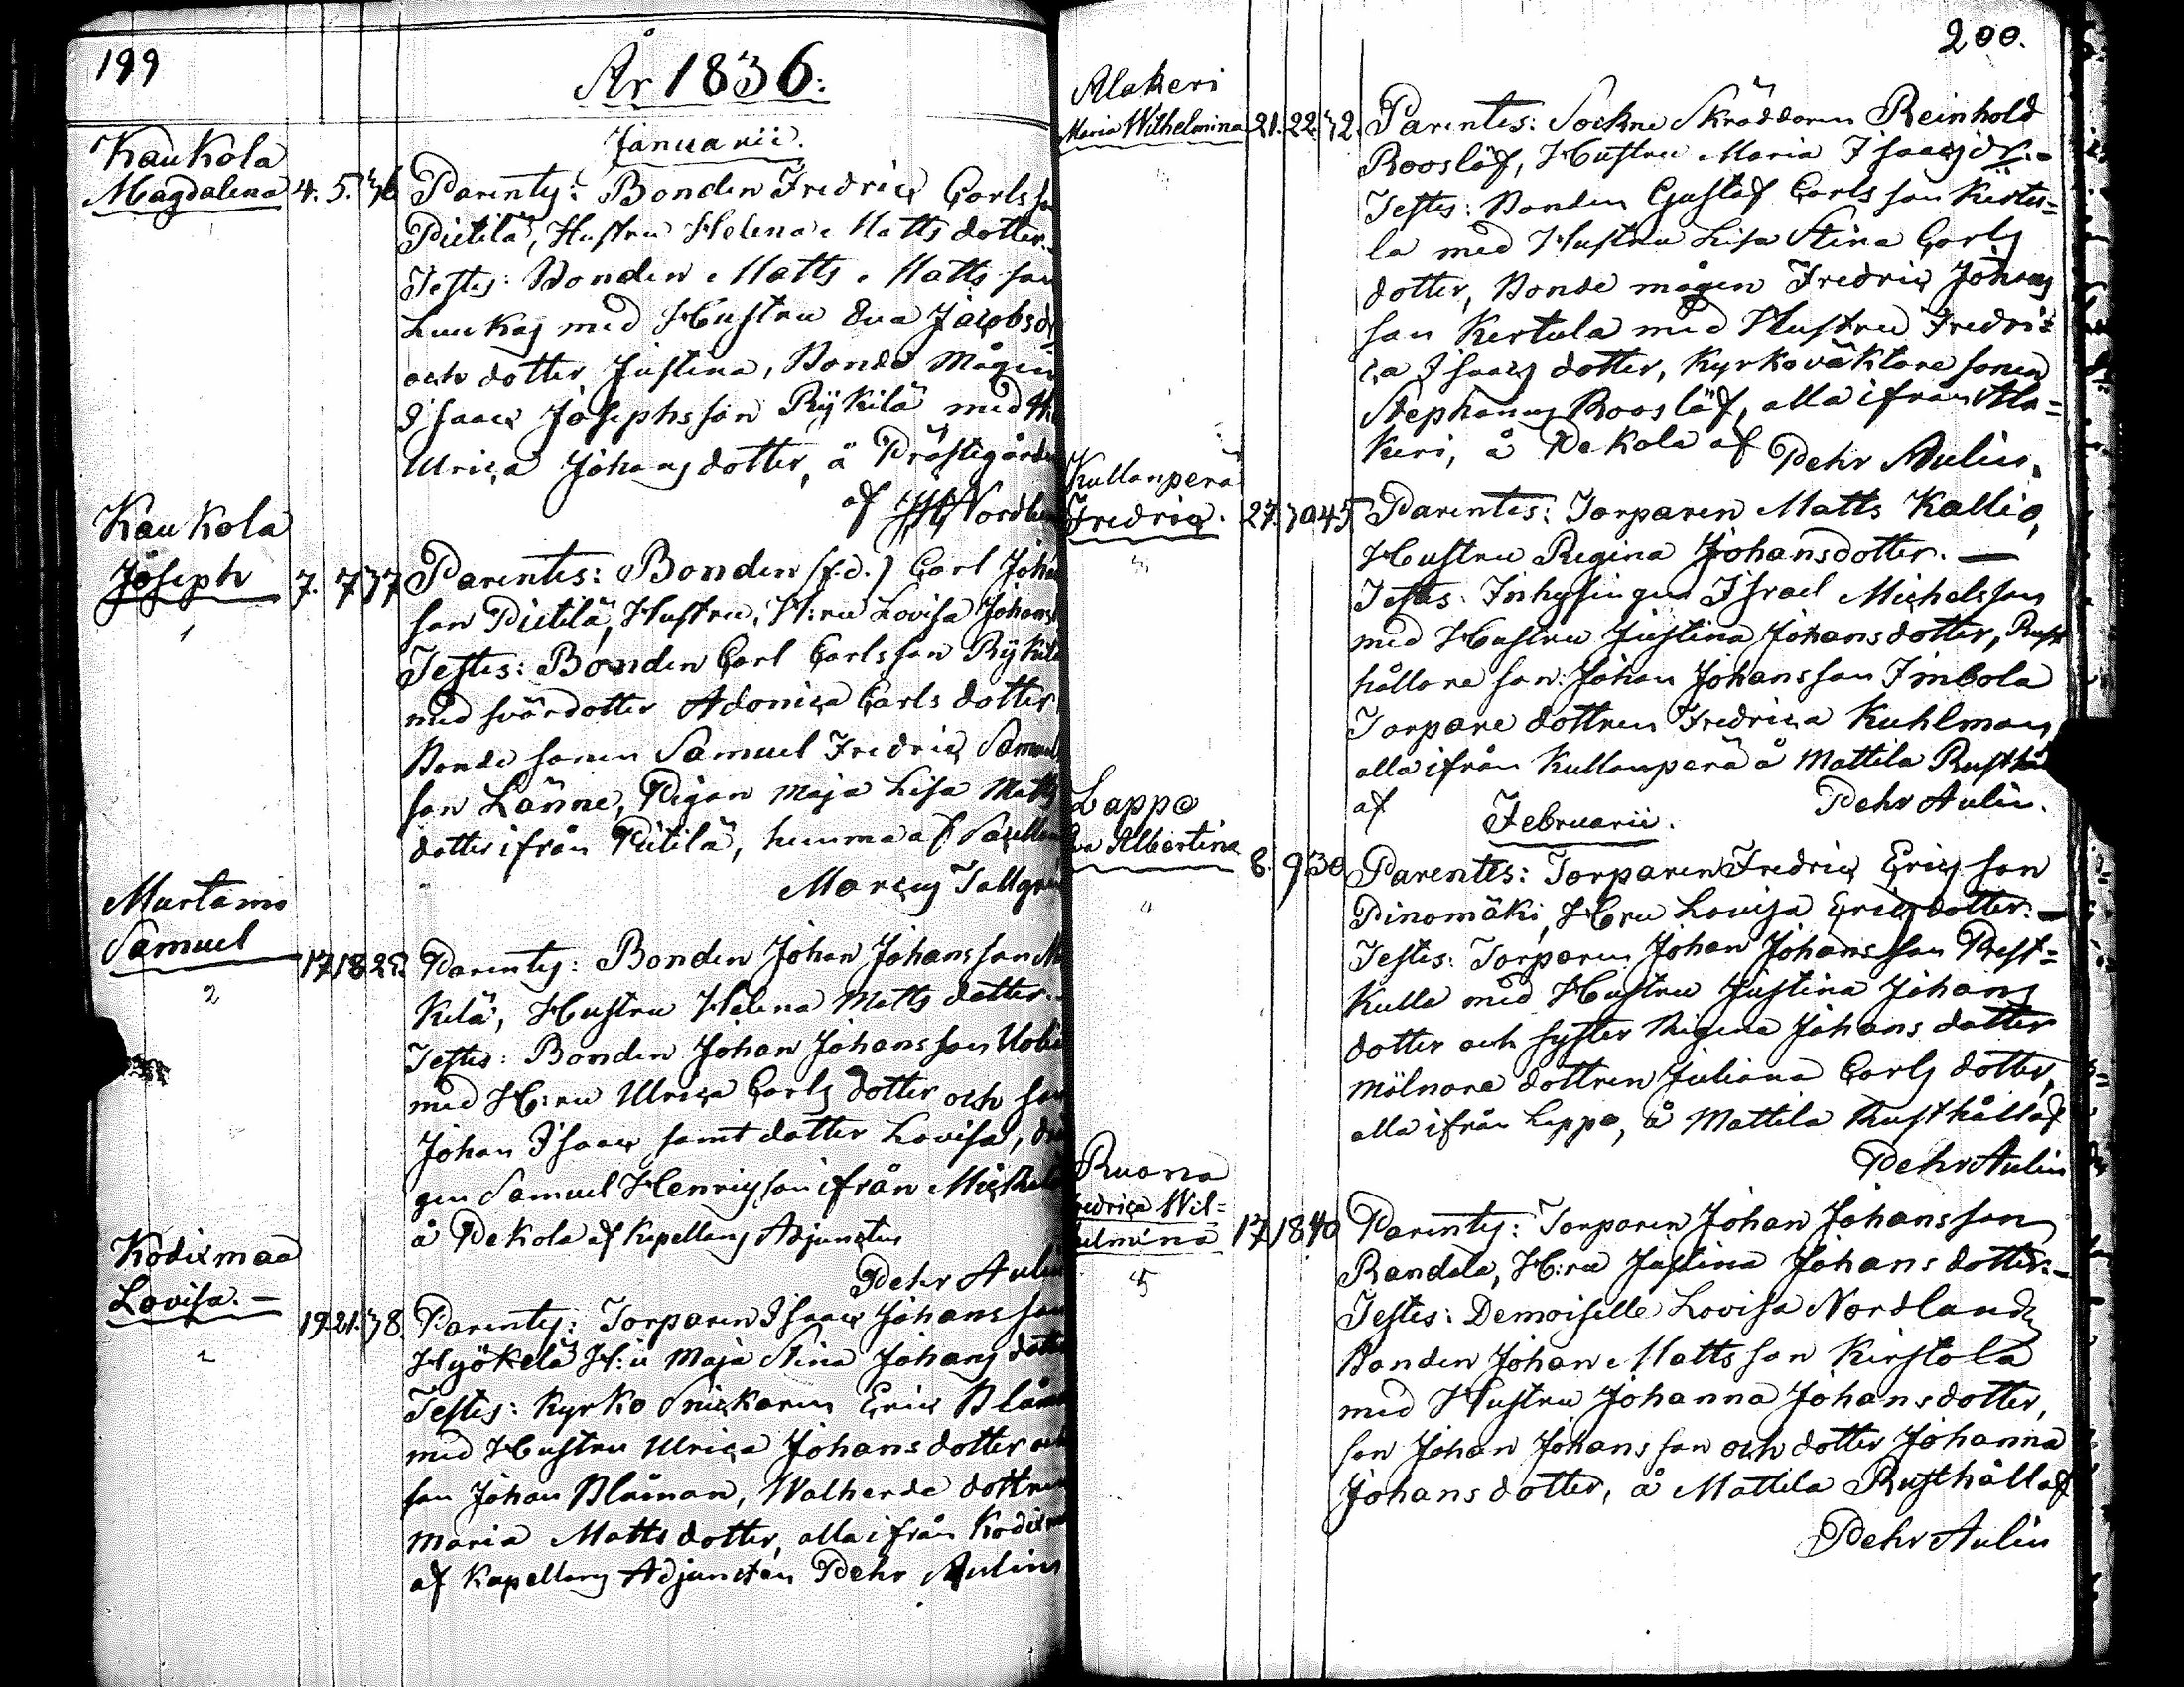 199
År 1836.
Januarii.
Kaukola
Magdalena 4. 5. 36 Parentes: Bonden Fredric Carlsson
Pietilä, Hustru Helena Matts dotter.
Testes: Bonden Matts Matts son
Luukas med Hustru Eva Jacobsd
och dotter Justina, Bonde Mågen
Isaac Josephsson Rykilä med H
Ulrica Johans dotter, å Prästegården
af Nordlund
Kaukola
Joseph 7. 7 37 Parentes: Bonden (f.d.) Carl Johan
son Pietilä, Hustru, H:ru Lovisa Johans
1
Testes: Bonden Carl Carlsson Rykilä
med svärdotter Adonica Carls dotter
Bonde sonen Samuel Fredric Samuel
son Länne, Pigan Maja Lisa Matts
dotter ifrån Pietilä, hemma af Sacellan
Marcus Tallgren
Murtamo
Samuel 17 18 25. Parentes: Bonden Johan Johansson
2
kilä, Hustru Helena Matts dotter.
Testes: Bonden Johan Johansson
med H:ru Ulrica Carls dotter och son
Johan Isaac samt dotter Lovisa, drän
gen Samuel Henricsson ifrån
å Pekola af Kapellans Adjuncten
Pehr Aulin
Kodixmaa
Lovisa. – 19. 21. 38. Parentes: Torparen Isaac Johansson
2
Hyökelä H:u Maja Stina Johans dotter
Testes: Kyrko Snickaren Eric Blåman
med Hustru Ulrica Johans dotter och
son Johan Blåman, Walherde dottren
Maria Matts dotter, alla ifrån Kodixm
af Kapellans Adjuncten Pehr Aulin
200.
Alakeri
Maria Wilhelmina 21. 22. 32. Parentes: Sockne Skräddaren Reinhold
Rooslöf, Hustru Maria Isaacsdr. –
Testes: Bonden Gustaf Carlsson Kertu=
la med Hustru Lisa Stina Carls
dotter, Bonde mågen Fredric Johans
son Kertula med Hustru Fredri=
ca Isaacs dotter, Kyrkoväktare sonen
Stephanus Rooslöf, alla ifrån Ala=
keri, å Pekola af Pehr Aulin.
Kullanperä
Fredric. 27. 30 45 Parentes: Torparen Matts Kallio,
Hustru Regina Johansdotter. –
Testes: Inhysingen Israel Michelsson
med Hustru Justina Johansdotter, Rust
hållare son Johan Johansson Imbola
Torpare dottren Fredrica Kuhlman
alla ifrån Kullanperä å Mattila Rusthåll
af Pehr Aulin.
Februarii.
Lappo
Eva Albertina 8. 9. 30 Parentes: Torparen Fredric Ericsson
Pinomäki, H:ru Lovisa Erics dotter: –
Testes: Torparen Johan Johansson Prest=
kulla med Hustru Justina Johans
dotter och syster Regina Johans dotter
mölnare dottren Juliana Carls dotter,
alla ifrån Lappo, å Mattila Rusthåll af
Pehr Aulin
Ruona
Fredrica Wil=
helmina 17 18 40 Parentes: Torparen Johan Johansson
5
Randala, H:ru Justina Johans dotter: –
Testes: Demoiselle Lovisa Nordlund
Bonden Johan Mattsson Kirstola
med Hustru Johanna Johansdotter,
son Johan Johansson och dotter Johanna
Johansdotter, å Mattila Rusthåll af
Pehr Aulin